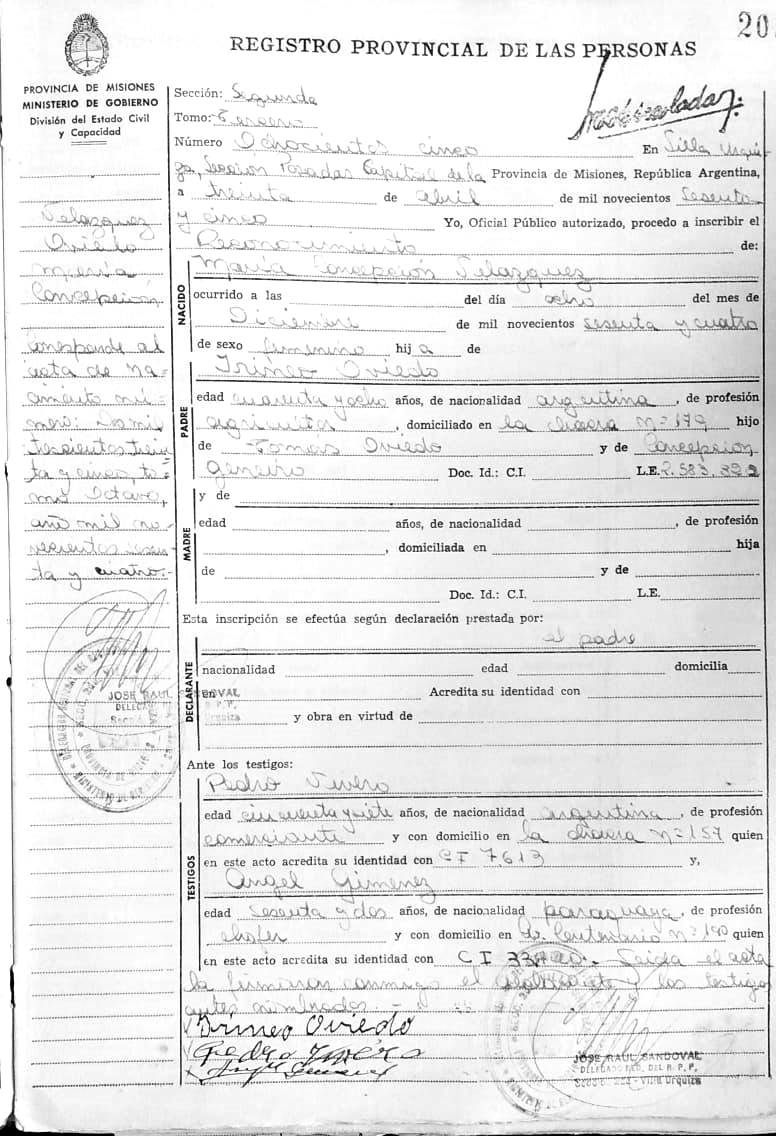 20
REGISTRO PROVINCIAL DE LAS PERSONAS
PROVINCIA DE MISIONES
MINISTERIO DE GOBIERNO
División del Estado Civil
y Capacidad
Velazquez
Oviedo
María
Concepción
Corresponde al
acta de na-
cimiento nú-
mero: Dos mil
trescientos trein
ta y cinco, to=
mo Octavo,
año mil no-
vecientos sesen-
ta y cuatro.-
Sección: Segunda
Tomo: Tercero
Número Ochocientos cinco En Villa Urqui-
za, Sección Posadas Capital de la Provincia de Misiones, República Argentina,
a treinta de abril de mil novecientos sesenta
y cinco Yo, Oficial Público autorizado, procedo a inscribir el
Reconocimiento de:
María Concepción Velazquez
NACIDO
ocurrido a las del día ocho del mes de
Diciembre de mil novecientos sesenta y cuatro
de sexo femenino hija de
PADRE
Irineo Oviedo
edad cuarenta y ocho años, de nacionalidad argentina, de profesión
agricultor, domiciliado en la chacra nº 179 hijo
de Tomás Oviedo y de Concepcion
Doc. Id.: C.I. L.E. 2.583.
MADRE
y de
edad años, de nacionalidad , de profesión
, domiciliada en hija
de y de
Doc. Id.: C.I. L.E.
Esta inscripción se efectúa según declaración prestada por:
el padre
DECLARANTE
nacionalidad edad domicilia
en Acredita su identidad con
y obra en virtud de
JOSE RAUL SANDOVAL
DELEGADO
Ante los testigos:
TESTIGOS
Pedro
edad cincuenta y siete años, de nacionalidad argentina, de profesión
comerciante y con domicilio en la chacra nº 157 quien
en este acto acredita su identidad con CI 7.613 y,
Angel Gimenez
edad sesenta y dos años, de nacionalidad paraguaya, de profesión
chofer y con domicilio en quien
en este acto acredita su identidad con CI Leida el acta
la firmaron conmigo el y los testigos
antes nombrados.-
Irineo Oviedo
Pedro
JOSE RAUL SANDOVAL
DELEGADO DEL R. P. P.
Villa Urquiza